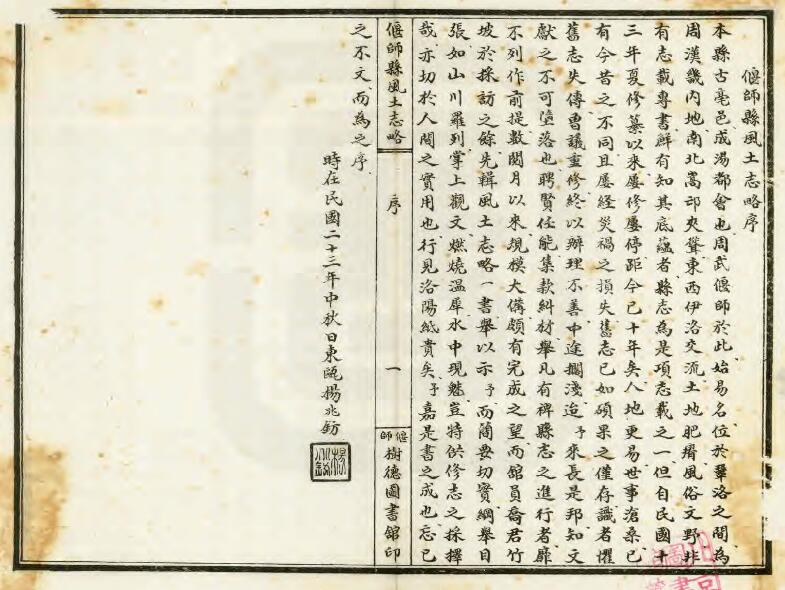 偃師縣風土志略序
本縣古亳邑成湯都會也周武偃師於此始易名位於鞏洛之間為
周漢畿內地南北嵩邙夾聳東西伊洛交流土地肥瘠風俗文野非
有志載專書鮮有知其底蘊者縣志為是項志載之一但自民國十
三年夏修纂以來屢修屢停距今已十年矣人地更易世事滄桑已
有今昔之不同且屢経災禍之損失舊志已如碩果之僅存識者懼
舊志失傳曾議重修終以辦理不善中途擱淺迨予来長是邦知文
獻之不可墮落也聘賢任能集款糾材舉凡有裨縣志之進行者靡
不列作前提數閱月以來規模大備頗有完成之望而舘員喬君竹
坡於採訪之餘先輯風土志略一書舉以示予而簡要切實綱舉目
張如山川羅列掌上觀文燃燒温犀水中現魅豈特供修志之採擇
哉亦切於人間之實用也行見洛陽紙貴矣予嘉是書之成也忘已
偃師縣風土志略
序
一
偃師樹德圖書舘印
之不文而為之序
時在民國二十三年中秋日東甌楊兆鈁